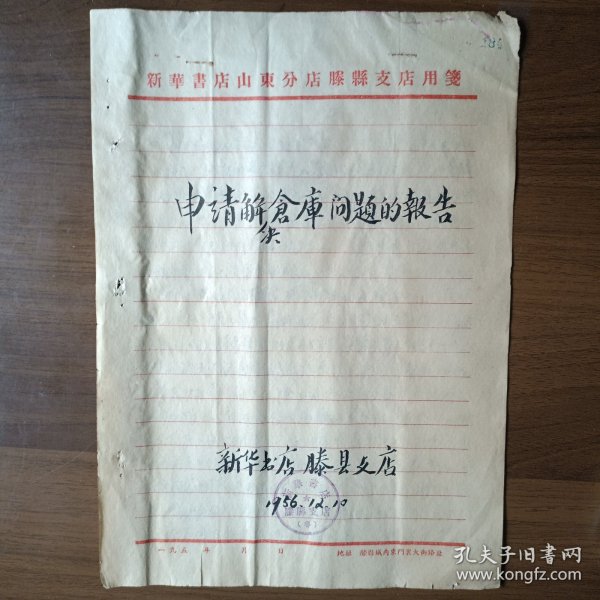 新華書店山東分店滕縣支店用箋
申請解倉庫问題的報告
决
新华书店滕县支店
1956.12.10
一九五 年 月 日
地址
孔夫子旧书网
www.kongfz.com